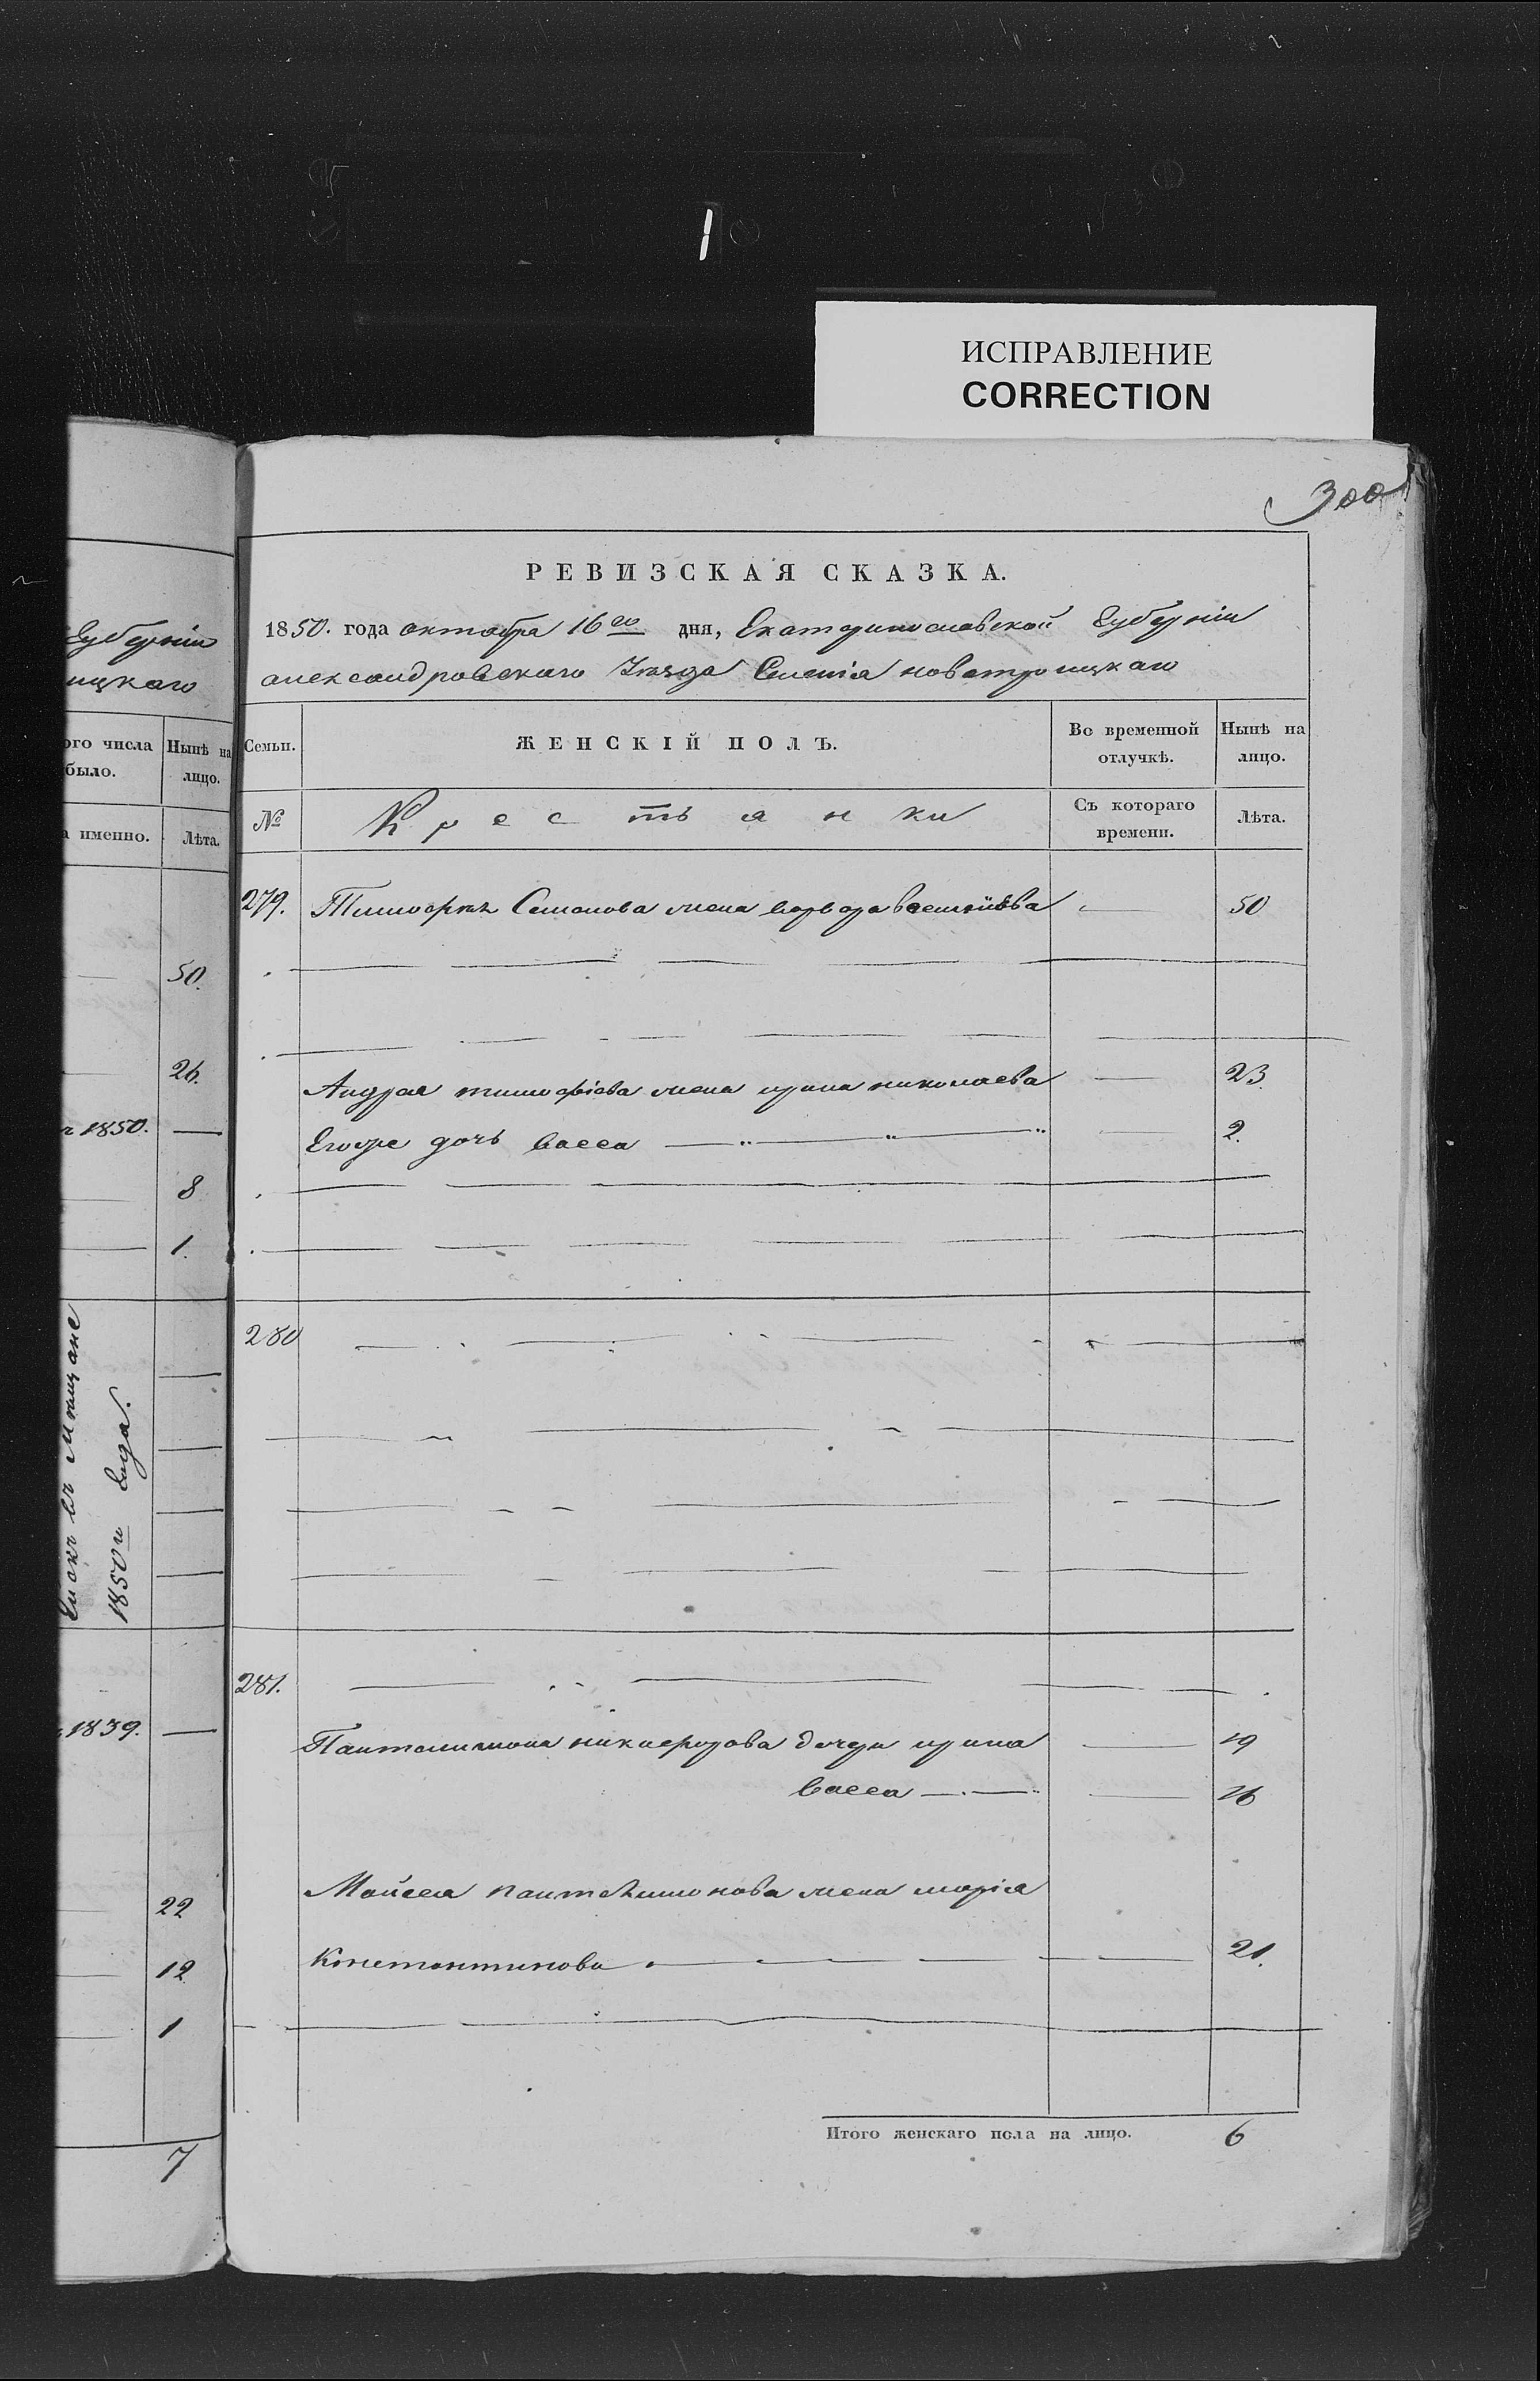 ИСПРАВЛЕНИЕ
CORRECTION
300
Губерніи
ицкаго
ого числа
было.
Нынѣ на
лицо.
а именно.
Лѣта.
50.
26.
1850. —
8
1.
въ Мещане
1850го Года.
1839. —
22
12
1
7
РЕВИЗСКАЯ СКАЗКА.
1850. года октября 16го дня, Екатеринославской Губерніи
александровскаго Уезда Селенія новотроицкаго
Семьи.
ЖЕНСКІЙ ПОЛЪ.
Во временной
отлучкѣ.
Нынѣ на
лицо.
№
Крестьянки
Съ котораго
времени.
Лѣта.
279. Тимофея Семонова жена варвора — 50
Андрея тимофіева жена ирина николаева — 23
Егоже дочь васса — 2.
280
281.
Пантелимона никиформова дочери ирина — 19
васса — 16
Мойсея пантелимонова жена марія
Констонтинова — 21.
Итого женскаго пола на лицо. 6